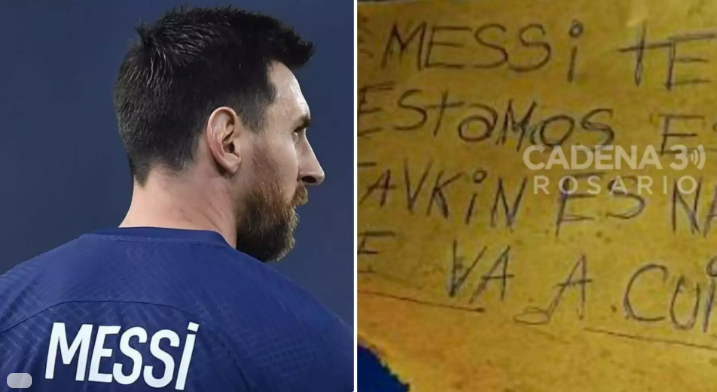 MESSi
MESSi TE
EStaMOS ES
AVKiN ES NA
E VA A CUi
CADENA 3
ROSARIO